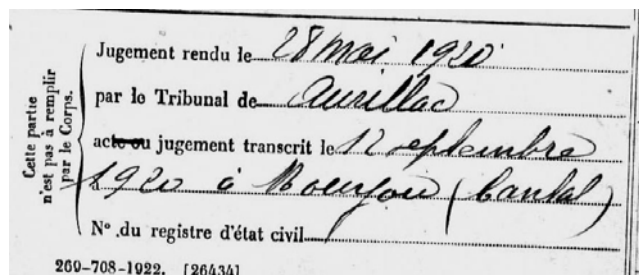 Cette partie
n'est pas à remplir
par le Corps.
Jugement rendu le 28 mai 1920
par le Tribunal de Aurillac
acte ou jugement transcrit le 12 septembre
1920 à Mourjou (Cantal)
N° du registre d'état civil
269-708-1922. [26434]